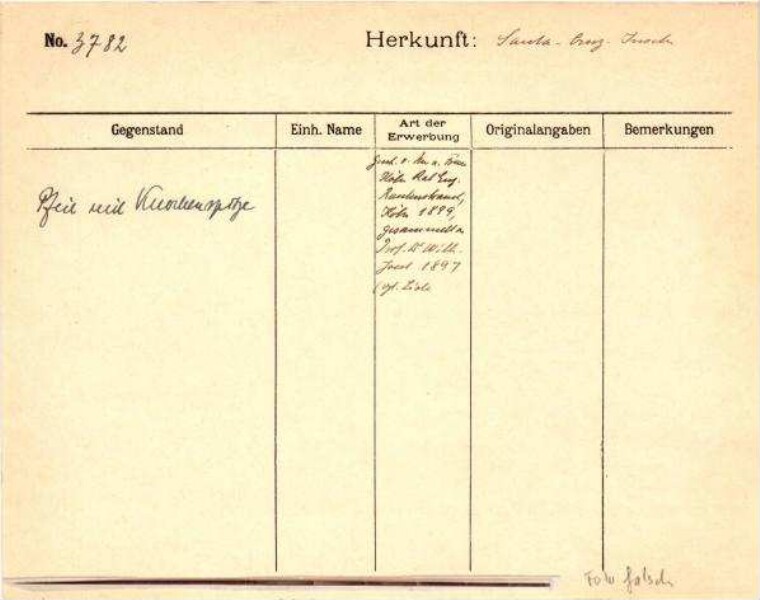 No. 3782
Herkunft: Santa-Cruz-Inseln
Gegenstand
Einh. Name
Art der Erwerbung
Originalangaben
Bemerkungen
Pfeil mit Knochenspitze
Gesch. v. Herrn u. Frau
Rautenstrauch,
Köln 1899,
gesammelt v.
Prof. Dr Wilh.
Joest 1897
Foto falsch